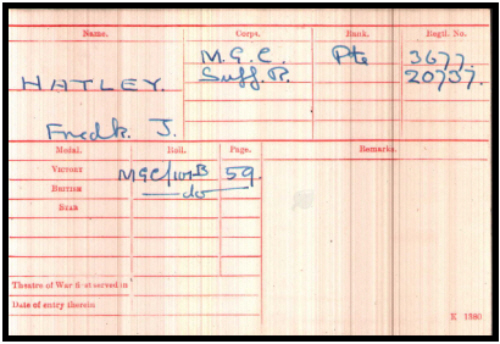 Name. Corps. Rank. Regtl. No.
M.G.C. Pte 3677.
HATLEY. Suff. R. 20737.
Fredk. J.
Medal. Roll. Page. Remarks.
VICTORY MGC/101B 59.
BRITISH do
STAR
Theatre of War first served in
Date of entry therein
K 1380